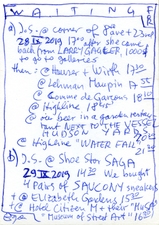 WAITING FR
a) D.S. @ Corner of 9ave + 22nd
28 IX 2019 17°° after she came
back from LARRY GAGGER,
to go to galleries
then: @ Hauser + Wirth 17³⁰
@ Lehman Maupin
@ Comme de Garcons 18¹⁰
@ Highline 18
@ for beer in a garden restau
rant NEXT TO THE
HUDSON
@ Highline "WATER FALL"
b) D.S. @ Shoe Stor SAGA
29 IX 2019 14³⁰ We bought
4 Pairs of SAUCONY sneakers
+ @ ELIZABETH Gardens 15³⁰
+ @ Hotel Citizen M + their "MUSA"
"Museum of Street Art" 16⁰⁰